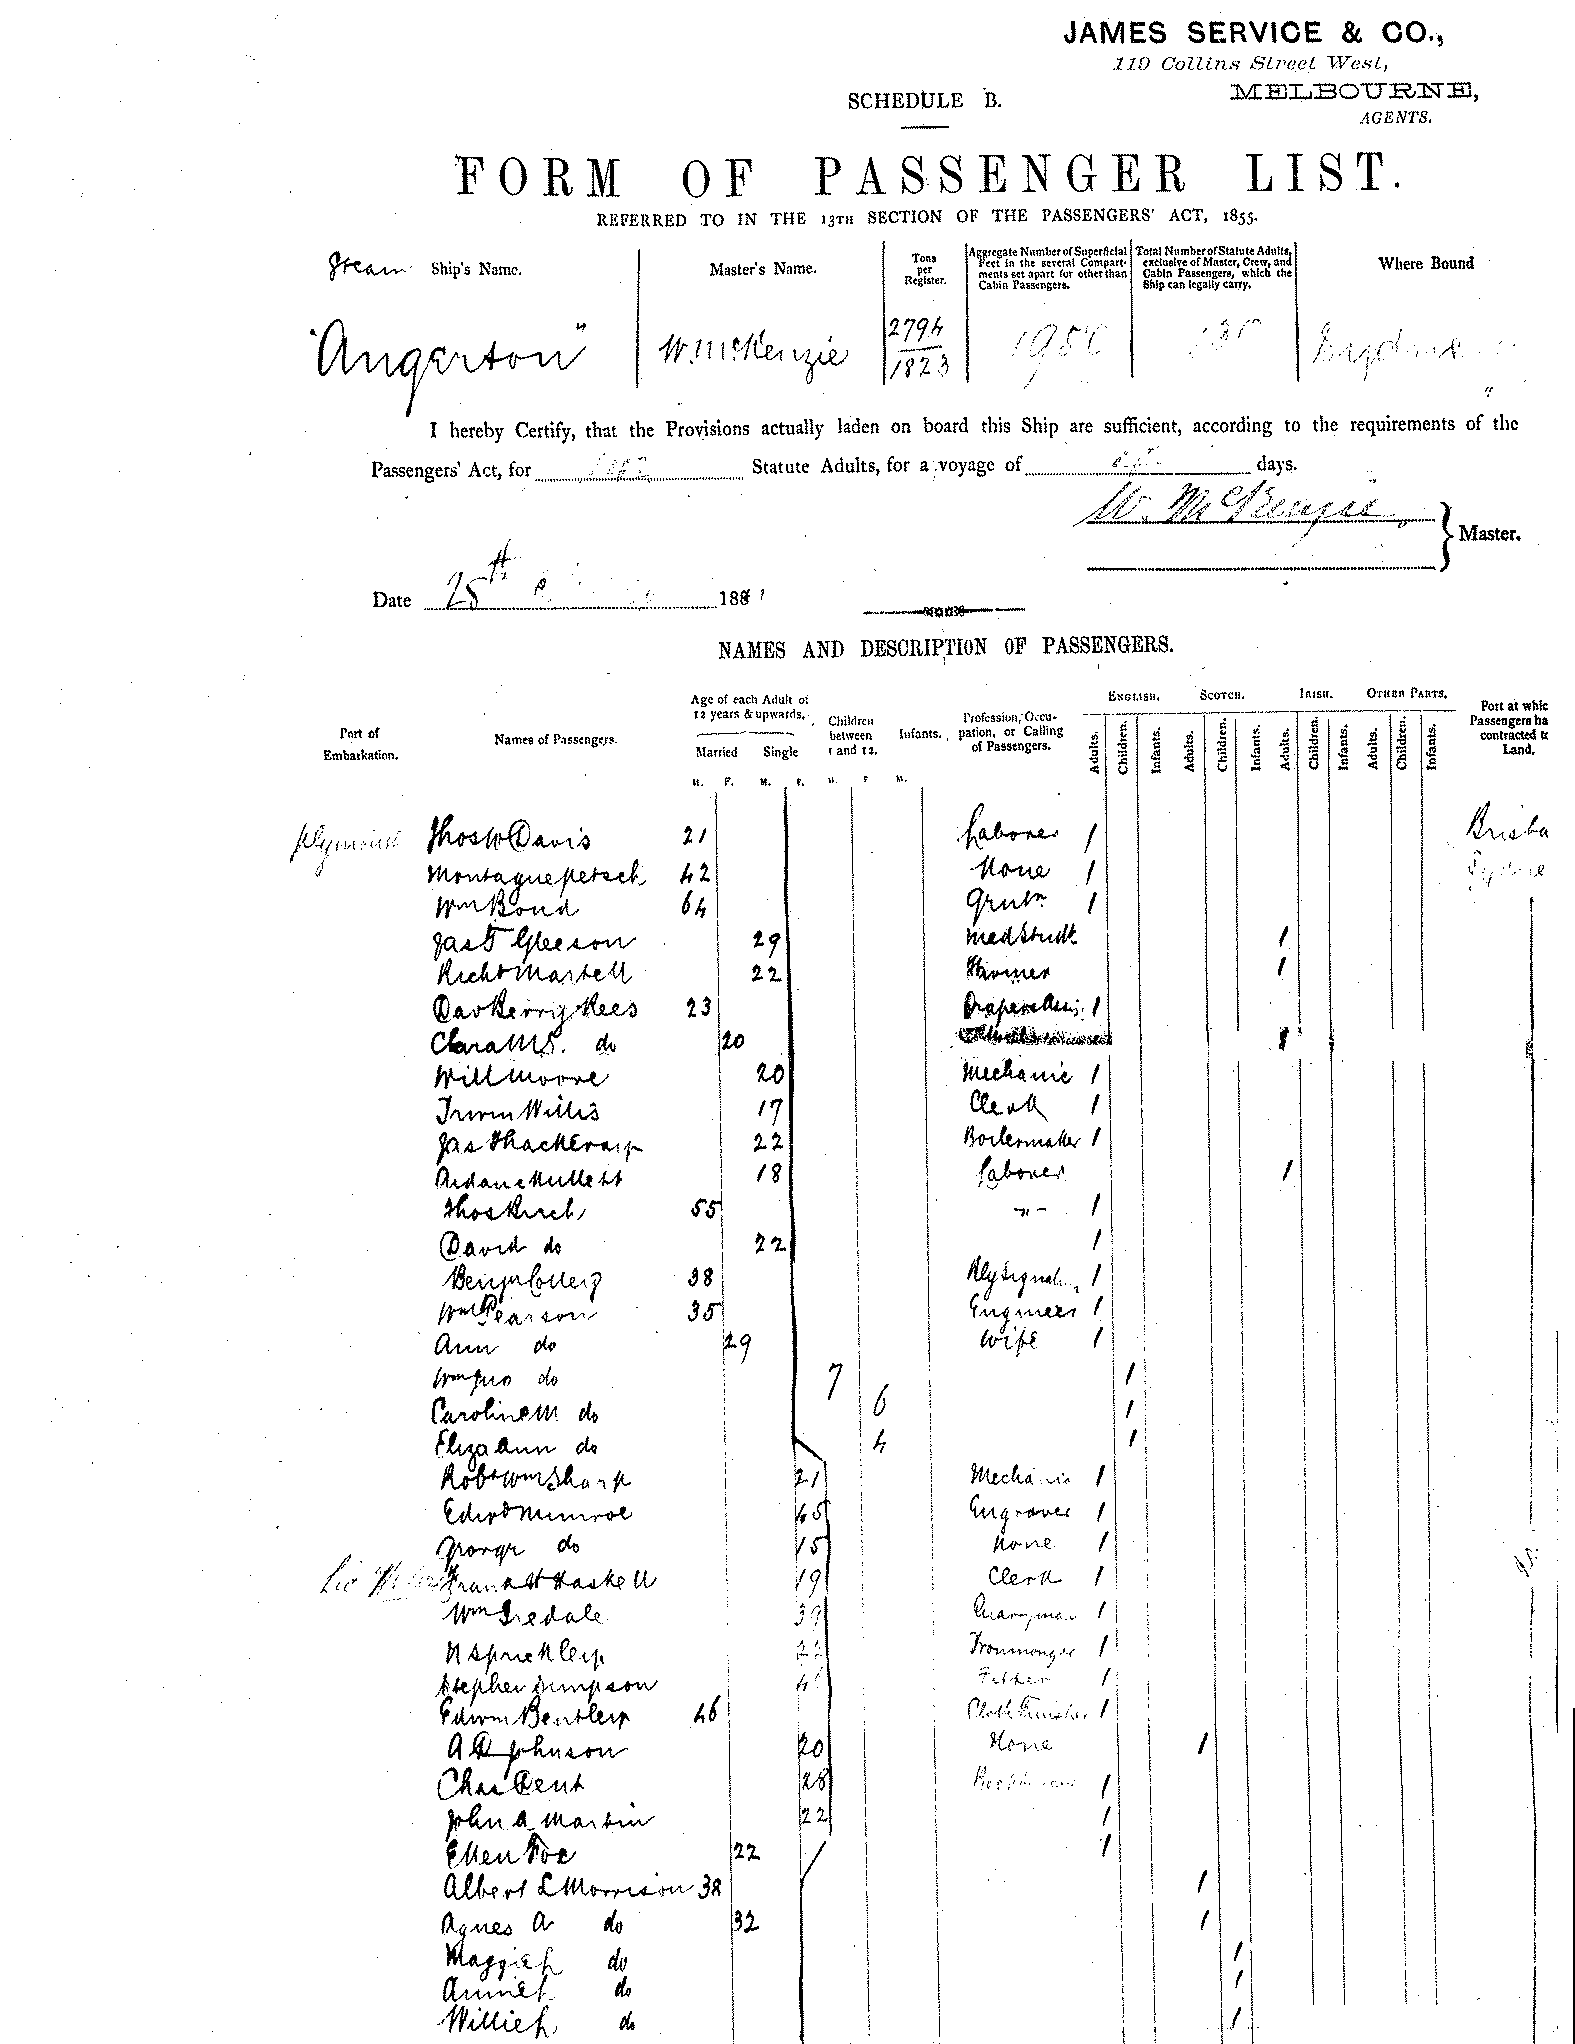 JAMES SERVICE & CO.,
119 Collins Street West,
MELBOURNE,
AGENTS.
SCHEDULE B.
FORM OF PASSENGER LIST.
REFERRED TO IN THE 13TH SECTION OF THE PASSENGERS' ACT, 1855.
Steam Ship's Name.
Master's Name.
Tons per Register.
Aggregate Number of Superficial Feet in the several Compartments set apart for other than Cabin Passengers.
Total Number of Statute Adults, exclusive of Master, Crew, and Cabin Passengers, which the Ship can legally carry.
Where Bound
"Angerton" W. McKenzie 2794/1823
I hereby Certify, that the Provisions actually laden on board this Ship are sufficient, according to the requirements of the
Passengers' Act, for Statute Adults, for a voyage of days.
W. McKenzie
Master.
Date 25th 1881
NAMES AND DESCRIPTION OF PASSENGERS.
Port of Embarkation.
Names of Passengers.
Age of each Adult of 12 years & upwards.
Married Single
M. F. M. F.
Children between 1 and 12.
M. F
Infants.
M.
Profession, Occupation, or Calling of Passengers.
ENGLISH. SCOTCH. IRISH. OTHER PARTS.
Adults. Children. Infants. Adults. Children. Infants. Adults. Children. Infants. Adults. Children. Infants.
Port at whic
Passengers ha
contracted t
Land.
Plymouth Thos W Davis 21 Laborer 1 Brisba
Montague 42 None 1 Sydne
Wm Bond 64 1
Jas T Gleeson 29 Med Studt 1
Richd Martell 22 Farmer 1
Dav Berry Rees 23 Drapers Assi 1
Clara M S. do 20 1
Will Moore 20 Mechanic 1
Irwin Willis 17 Clerk 1
Jas Thackeray 22 Boilermaker 1
Mullett 18 Laborer 1
Thos 55 -"- 1
David do 22 1
Benjn 38 Rly Signal 1
Wm Pearson 35 Engineer 1
Ann do 29 Wife 1
Wm Jno do 7 1
Caroline M do 6 1
Eliza Ann do 4 1
Robt Wm Sharp 21 Mechanic 1
Edwd Munroe 45 Engraver 1
George do 15 None 1
Frank H Haskell 19 Clerk 1
Wm Iredale 39 Quarryman 1
N Sprickley 22 Ironmonger 1
Stephen Simpson Fitter 1
Edwin Bentley 46 Cloth Finisher 1
A Johnson 20 None 1
Chas Dent 28 1
John A Martin 22 1
Ellen Foe 22 1
Albert L Morrison 38 1
Agnes A do 32 1
Maggie L do 1
Annie L do 1
Willie L do 1